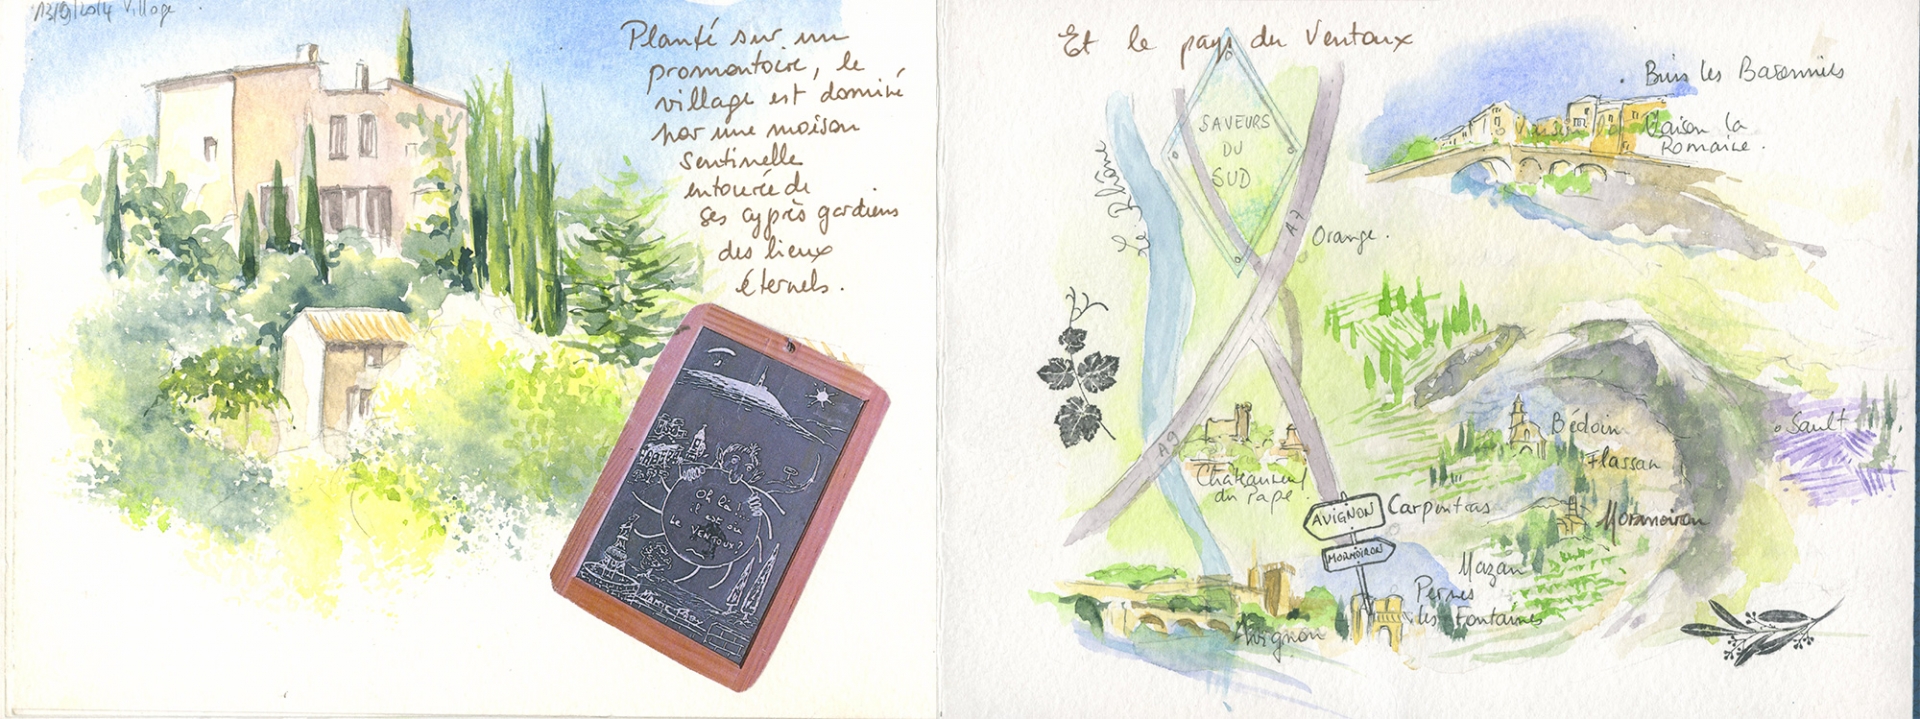 13/9/2014 Village
Planté sur un
promontoire, le
village est dominé
par une maison
sentinelle
entourée de
ses cyprès gardiens
des lieux
éternels.
Oh là !..
il est où
le
VENTOUX ?
Et le pays du Ventoux
Buis les Baronnies
Vaison la
Romaine.
SAVEURS
DU
SUD
Le Rhône
A7
Orange.
A9
Châteauneuf
du pape.
Bédoin
Flassan
Sault
AVIGNON
Carpentras
Mormoiron
MORMOIRON
Mazan
Pernes
les Fontaines
Avignon